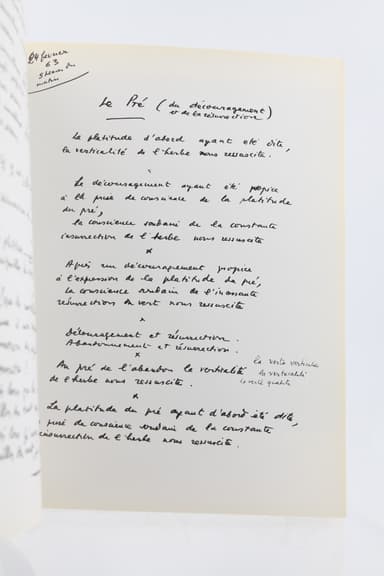 24 février
63
5 heures du
matin
Le Pré (du découragement)
et de la résurrection
La platitude d'abord ayant été dite,
la verticalité de l'herbe nous ressuscite.
Le découragement ayant été propice
à la prise de conscience de la platitude
du pré,
la conscience soudain de la constante
insurrection de l'herbe nous ressuscite
x
Après un découragement propice
à l'expression de la platitude du pré,
la conscience soudain de l'incessante
résurrection du vert nous ressuscite
x
Découragement et résurrection.
Abandonnement et résurrection.
x
Au pré de l'abandon la verticalité
de l'herbe nous ressuscite.
la verte verticale
la verticalité
la verte qualité
x
La platitude du pré ayant d'abord été dite,
prise de conscience soudain de la constante
insurrection de l'herbe nous ressuscite.